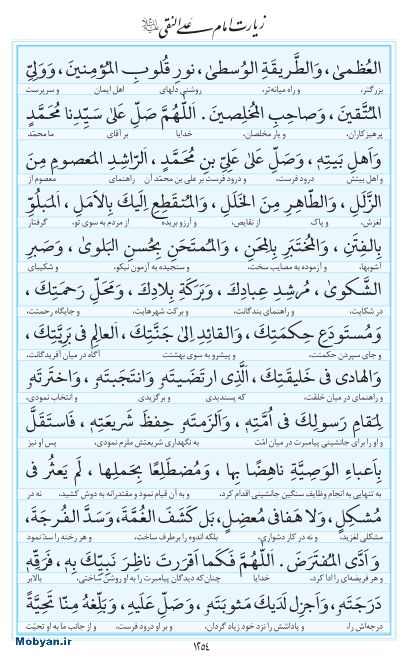 زیارت امام علی النقی علیه‌السلام
العُظمىٰ، وَالطَّريقَةِ الوُسطىٰ، نورِ قُلوبِ المُؤمِنينَ، وَوَلِيِّ
بزرگتر، و راه میانه‌تر، روشنی دلهای اهل ایمان و سرپرست
المُتَّقينَ، وَصاحِبِ المُخلِصينَ. اَللّٰهُمَّ صَلِّ عَلىٰ سَيِّدِنا مُحَمَّدٍ
پرهیزکاران، و یار مخلصان، خدایا بر آقای ما محمّد
وَاَهلِ بَيتِهِ، وَصَلِّ عَلىٰ عَلِيِّ بنِ مُحَمَّدٍ، اَلرّاشِدِ المَعصومِ مِنَ
و اهل بیتش درود فرست، و درود فرست بر علی بن محمّد آن راهنمای معصوم از
الزَّلَلِ، وَالطّاهِرِ مِنَ الخَلَلِ، وَالمُنقَطِعِ اِلَيكَ بِالاَمَلِ، اَلمَبلُوِّ
لغزش، و پاک از نقایص، و آرزو بریده از مردم به سوی تو، گرفتار
بِالفِتَنِ، وَالمُختَبَرِ بِالمِحَنِ، وَالمُمتَحَنِ بِحُسنِ البَلوىٰ، وَصَبرِ
آشوبها، و آزموده به مصایب سخت، و سنجیده به آزمون نیکو، و شکیبای
الشَّكوىٰ، مُرشِدِ عِبادِكَ، وَبَرَكَةِ بِلادِكَ، وَمَحَلِّ رَحمَتِكَ،
در شکایت، و راهنمای بندگانت، و برکت شهرهایت، و جایگاه رحمتت،
وَمُستَودَعِ حِكمَتِكَ، وَالقائِدِ اِلىٰ جَنَّتِكَ، اَلعالِمِ فى بَرِيَّتِكَ،
و جای سپردن حکمتت، و پیشرو به سوی بهشتت آگاه در میان آفریدگانت،
وَالهادى فى خَليقَتِكَ، اَلَّذِى ارتَضَيتَهُ، وَانتَجَبتَهُ، وَاختَرتَهُ
و راهنمای در میان خلقت، که پسندیدی و برگزیدی، و انتخاب نمودی،
لِمَقامِ رَسولِكَ فى اُمَّتِهِ، وَاَلزَمتَهُ حِفظَ شَريعَتِهِ، فَاستَقَلَّ
و او را برای جانشینی پیامبرت در میان امّت به نگهداری شریعتش ملزم نمودی، پس او نیز
بِاَعباءِ الوَصِيَّةِ ناهِضًا بِها، وَمُضطَلِعًا بِحَملِها، لَم يَعثُر فى
به تنهایی به انجام وظایف سنگین جانشینی اقدام کرد، و به آن قیام نمود و مقتدرانه به دوش کشید، نه در
مُشكِلٍ، وَلا هَفا فى مُعضِلٍ، بَل كَشَفَ الغُمَّةَ، وَسَدَّ الفُرجَةَ،
مشکلی لغزید، و نه در کار دشواری، بلکه اندوه را برطرف ساخت، و هر رخنه را سدّ نمود
وَ اَدَّى المُفتَرَضَ. اَللّٰهُمَّ فَكَما اَقرَرتَ ناظِرَ نَبِيِّكَ بِهِ، فَرَقِّهِ
و هر فریضه‌ای را ادا کرد، خدایا چنان‌که دیدگان پیامبرت را به او روشن ساختی، بالابر
دَرَجَتَهُ، وَاَجزِل لَدَيكَ مَثوبَتَهُ، وَصَلِّ عَلَيهِ، وَبَلِّغهُ مِنّا تَحِيَّةً
درجه‌اش را، و پاداشش را نزد خود زیاد گردان، و بر او درود فرست، و از جانب ما به او تحیّت
١٢٥٤
Mobyan.ir